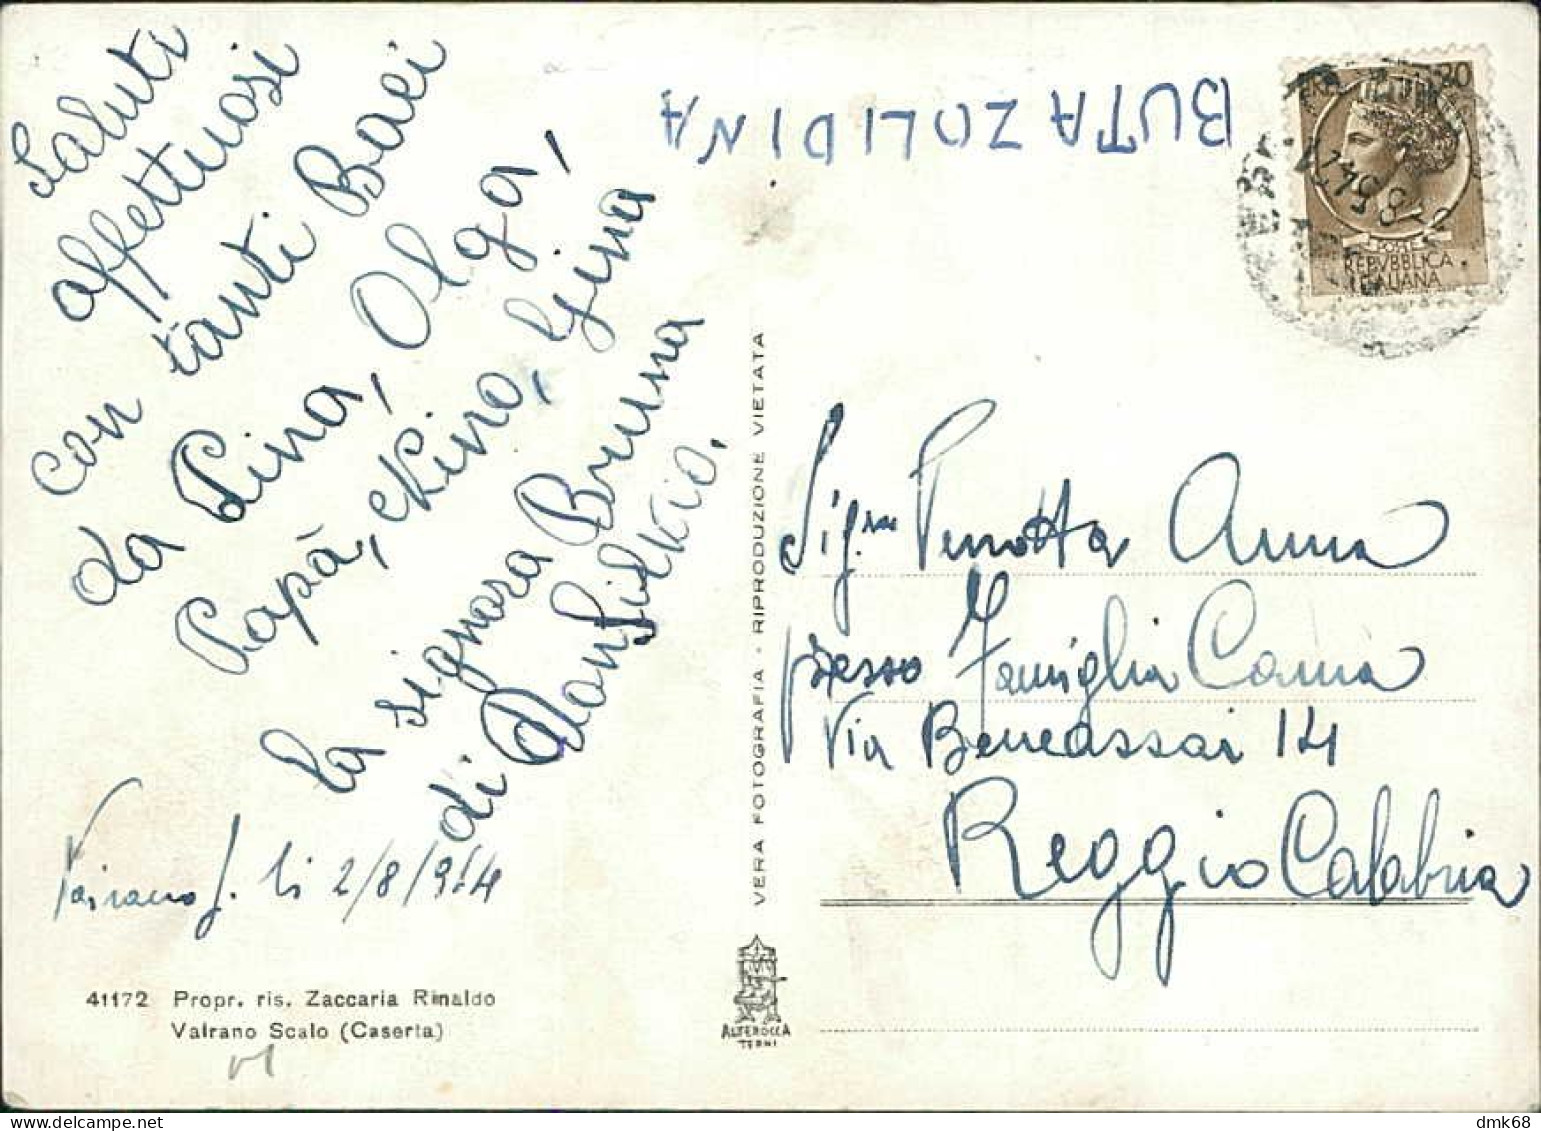 Saluti
affettuosi
con tanti Baci
da Pina, Olga,
Papà, Nino, Gina
la signora Bruna
di
Vairano S. li 2/8/954
41172 Propr. ris. Zaccaria Rinaldo
Vairano Scalo (Caserta)
VERA FOTOGRAFIA - RIPRODUZIONE VIETATA
ALTEROCCA
TERNI
BUTAZOLIDINA
20
REPVBBLICA
ITALIANA
Sig.na Penotta Anna
presso Famiglia Cama
Via Benedassai 14
Reggio Calabria
dmk68